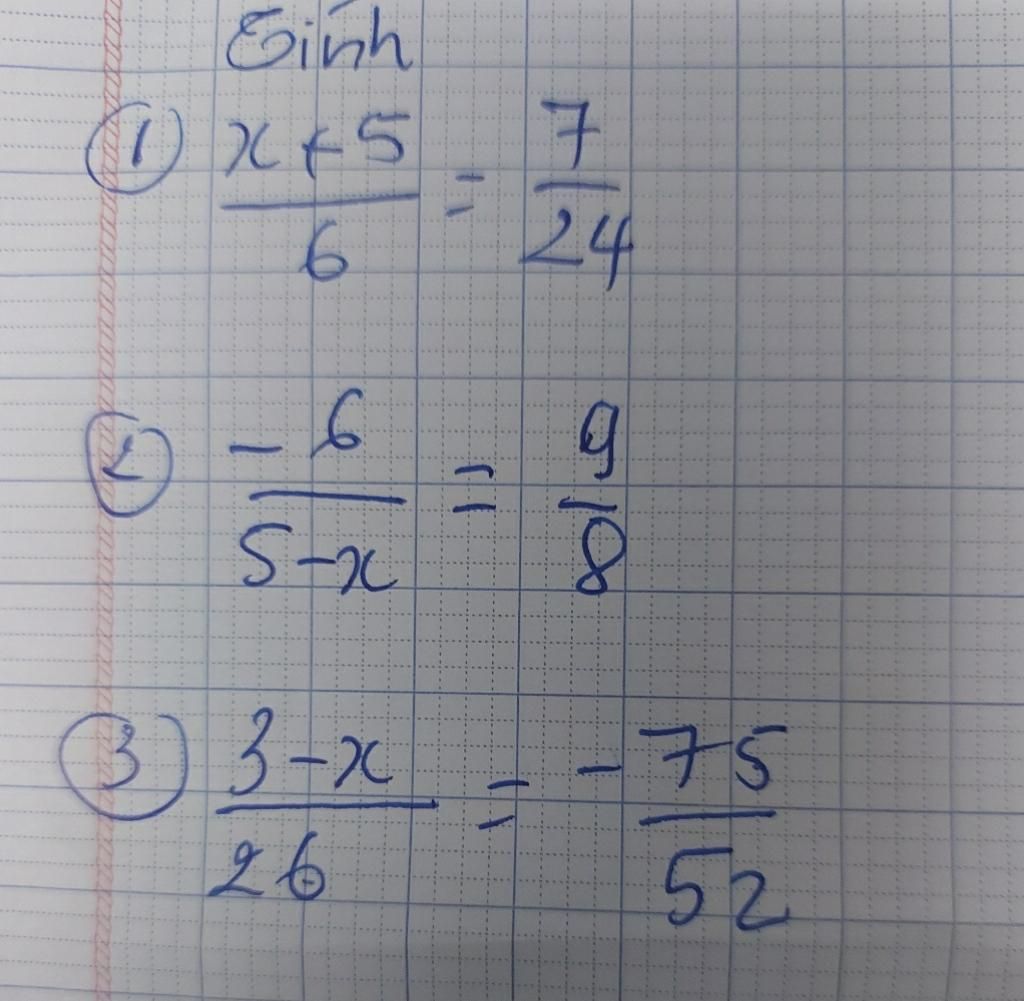 Tính
① x+5/6 = 7/24
② -6/5-x = 9/8
③ 3-x/26 = -75/52